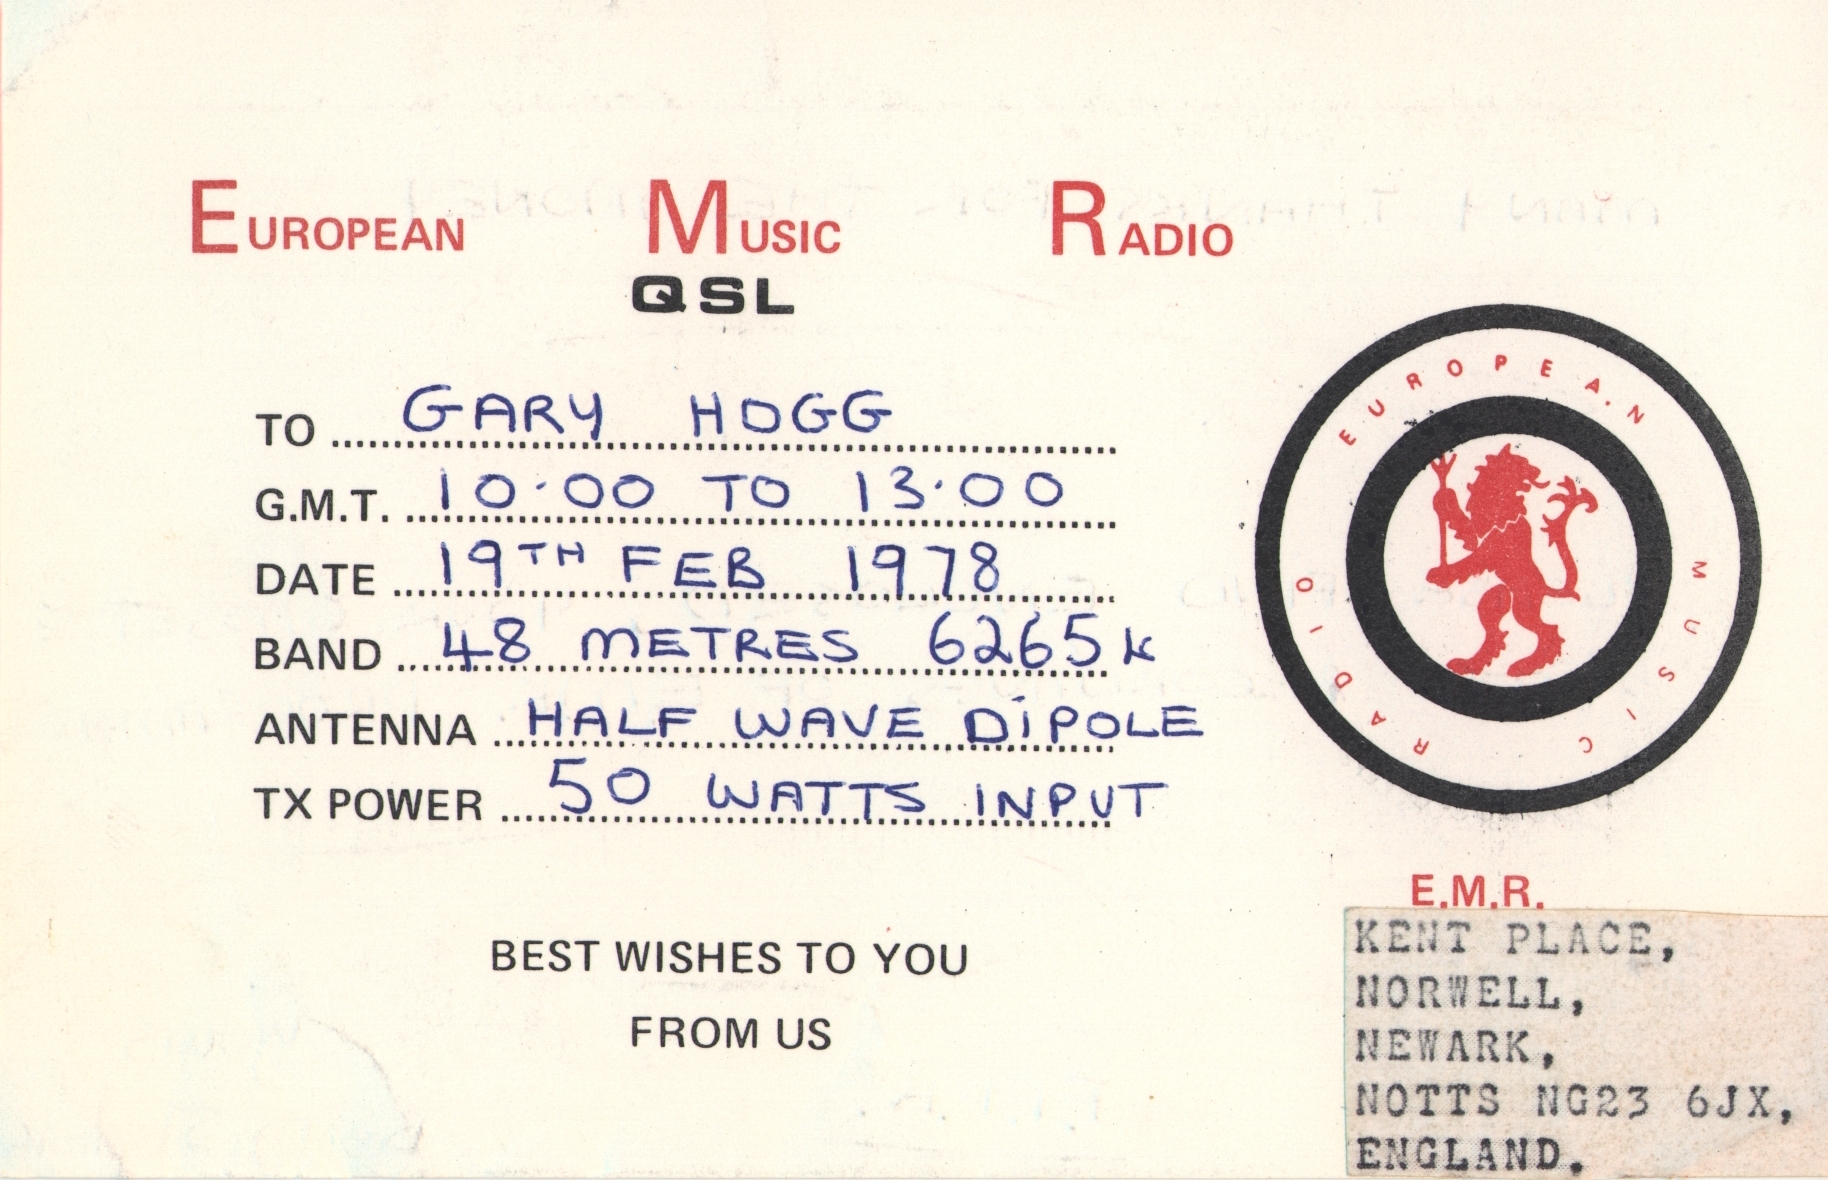 EUROPEAN MUSIC RADIO
QSL
TO GARY HOGG
G.M.T. 10·00 TO 13·00
DATE 19TH FEB 1978
BAND 48 METRES 6265 k
ANTENNA HALF WAVE DIPOLE
TX POWER 50 WATTS INPUT
BEST WISHES TO YOU
FROM US
EUROPEAN MUSIC RADIO
E.M.R.
KENT PLACE,
NORWELL,
NEWARK,
NOTTS NG23 6JX,
ENGLAND.